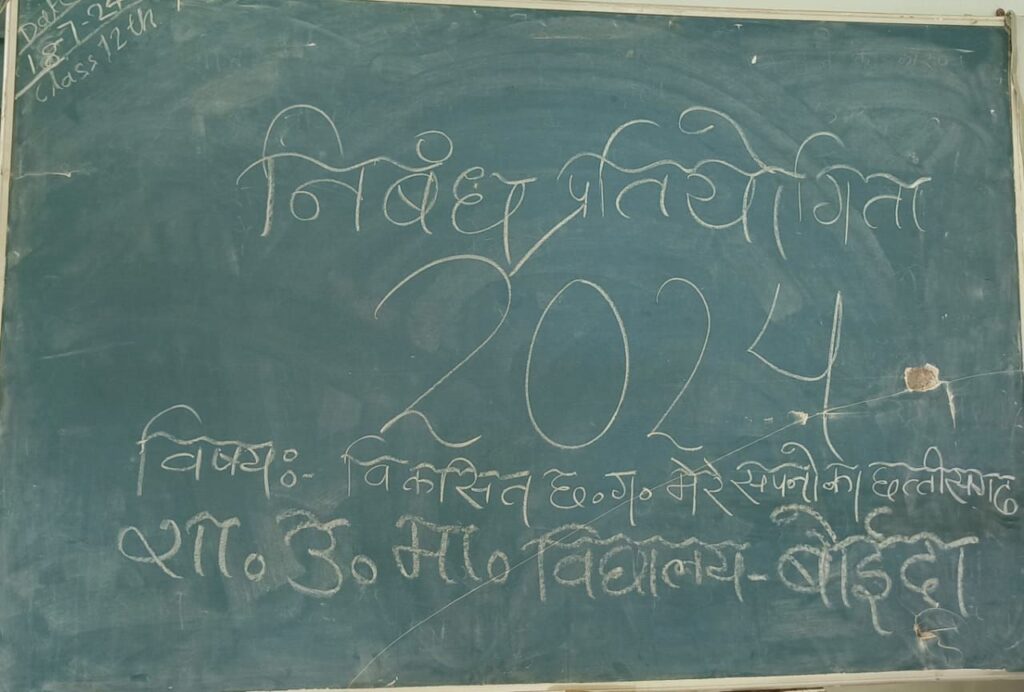 Date
18-7-24
Class 12th
निबंध प्रतियोगिता
2024
विषय:- विकसित छ.ग. मेरे सपनो का छत्तीसगढ
शा. उ. मा. विद्यालय - बोईदा